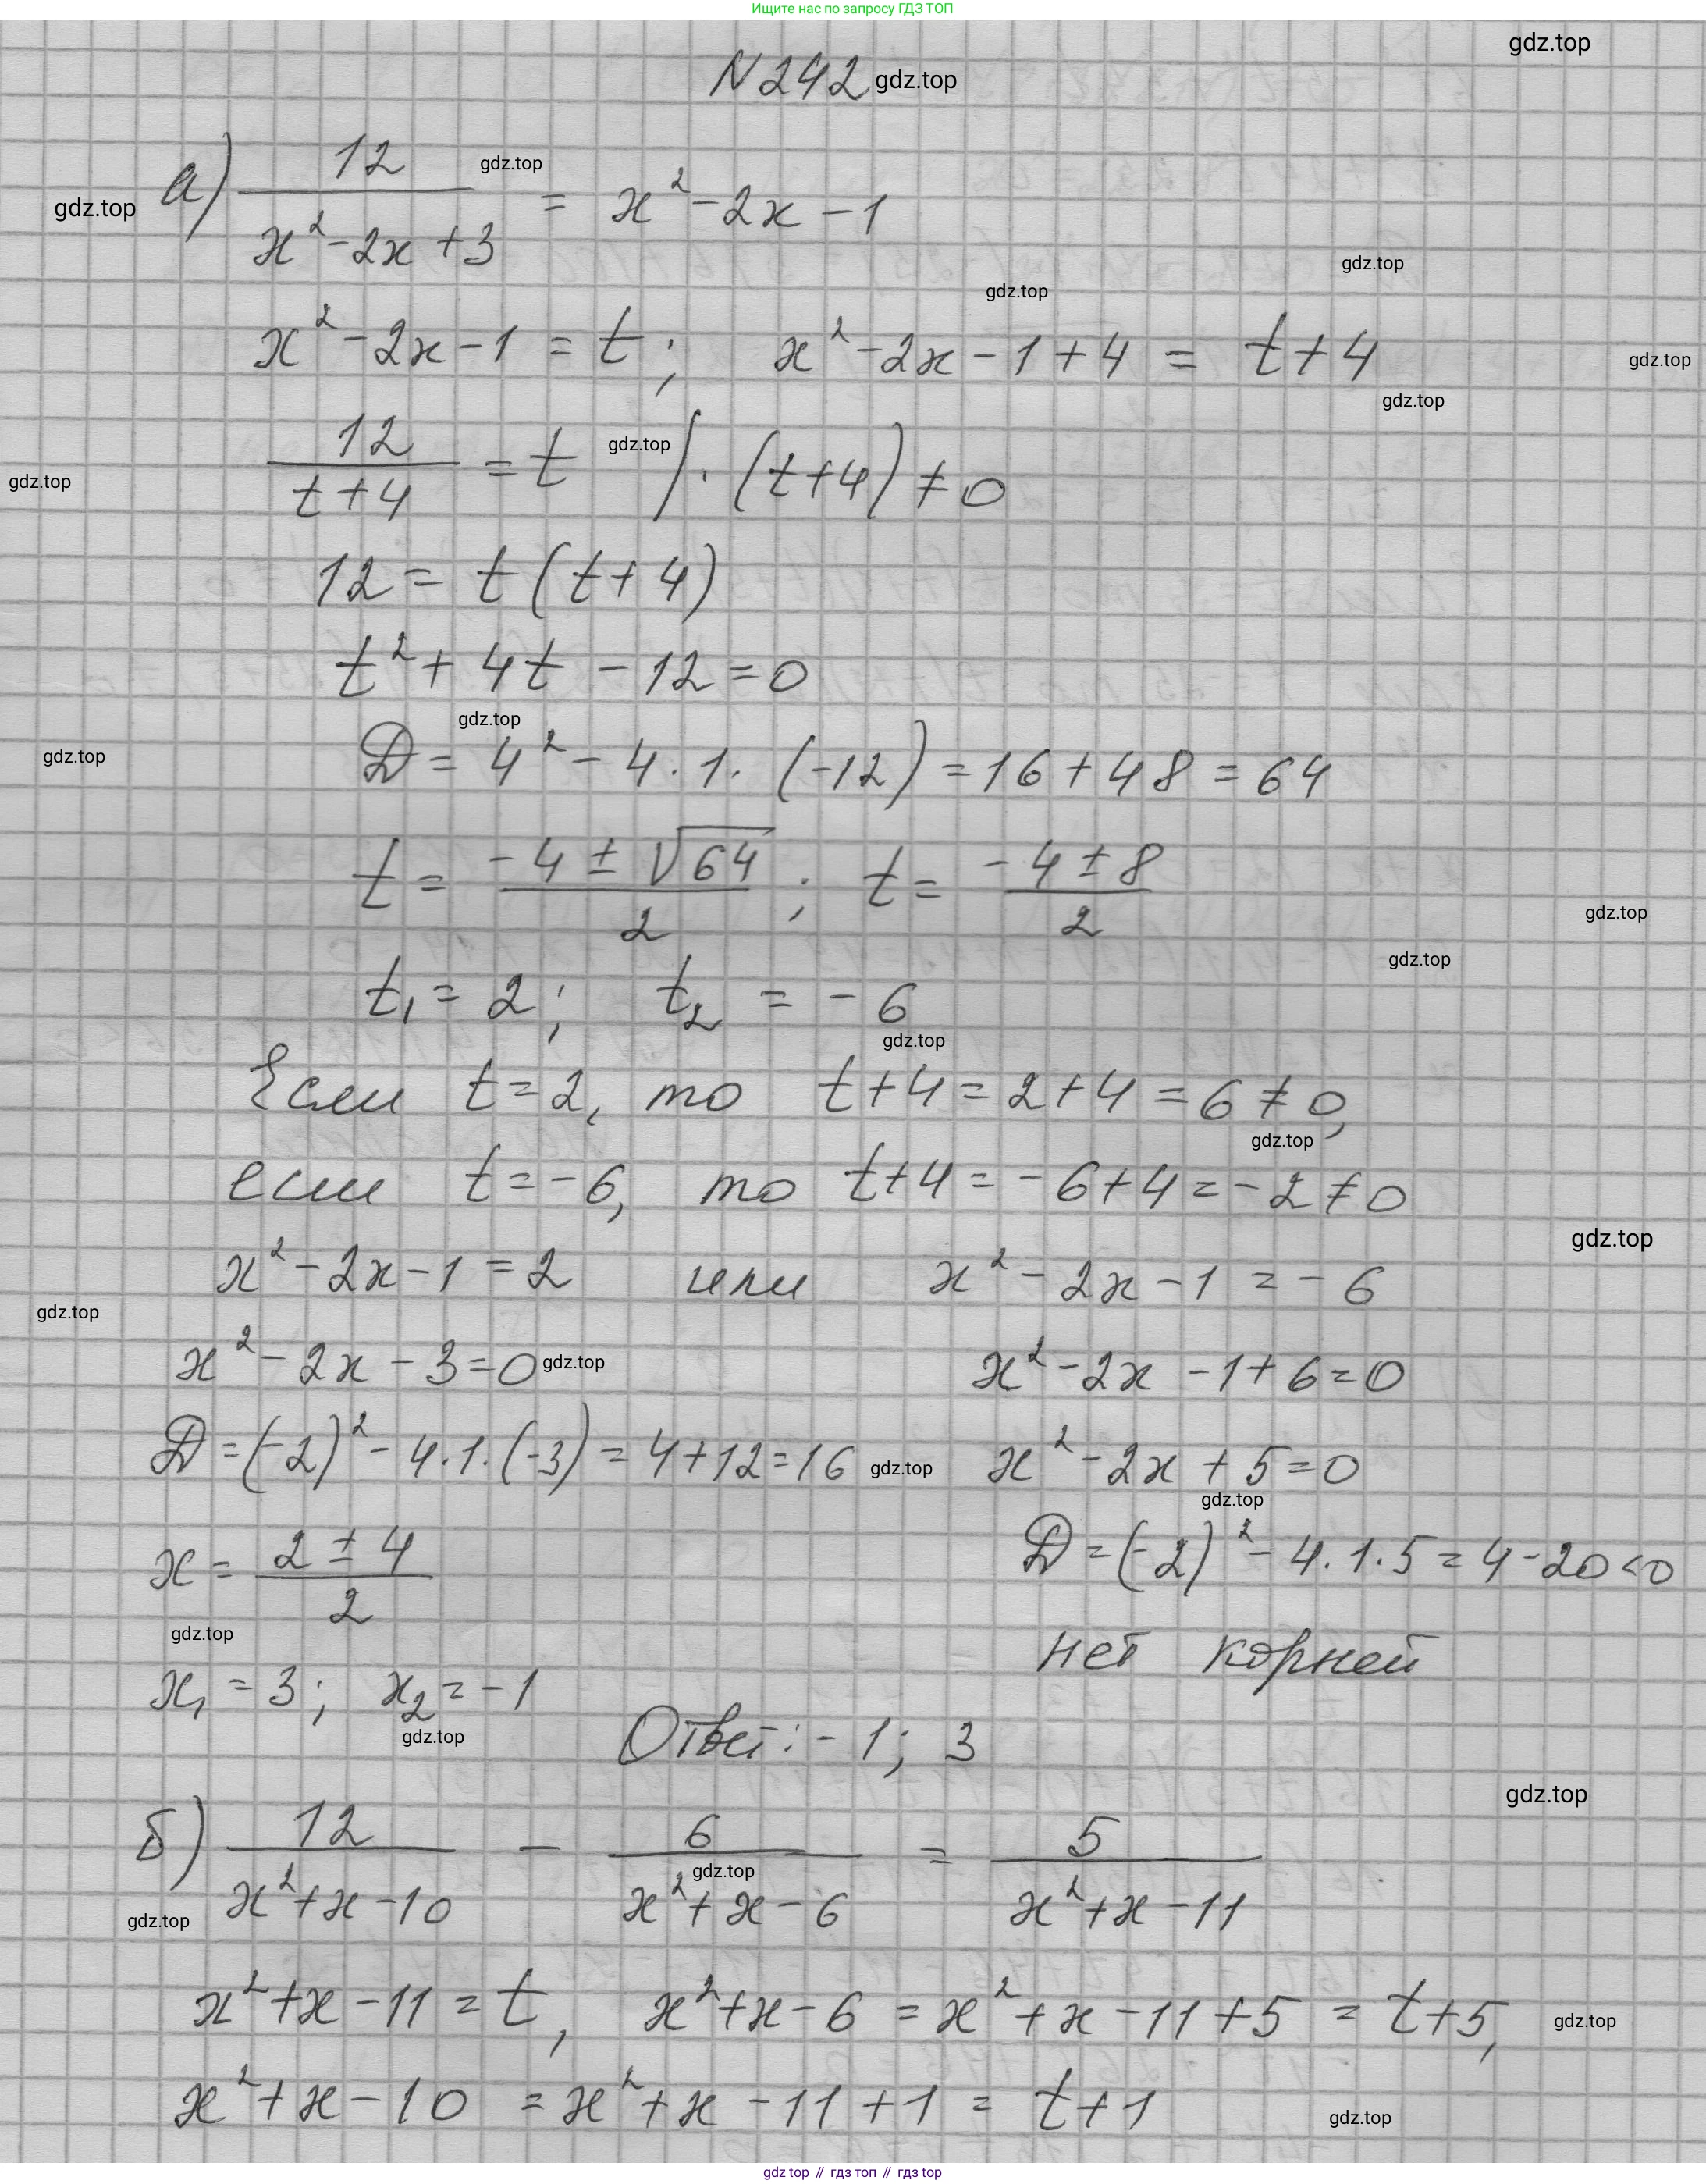 Ищите нас по запросу ГДЗ ТОП
gdz.top
N242 gdz.top
а) 12/(x²-2x+3) = x²-2x-1
gdz.top
gdz.top
gdz.top
gdz.top
x²-2x-1 = t; x²-2x-1+4 = t+4
gdz.top
gdz.top
12/(t+4) = t gdz.top /·(t+4)≠0
gdz.top
12 = t(t+4)
t²+4t-12=0
gdz.top
gdz.top
D = 4²-4·1·(-12) = 16+48 = 64
t = (-4±√64)/2; t = (-4±8)/2
gdz.top
gdz.top
t₁ = 2; t₂ = -6
gdz.top
Если t=2, то t+4=2+4=6≠0,
gdz.top
если t=-6, то t+4=-6+4=-2≠0
gdz.top
x²-2x-1=2 или x²-2x-1=-6
gdz.top
x²-2x-3=0 gdz.top x²-2x-1+6=0
D=(-2)²-4·1·(-3)=4+12=16 gdz.top x²-2x+5=0
gdz.top
x=(2±4)/2 D=(-2)²-4·1·5=4-20<0
gdz.top
нет корней
x₁=3; x₂=-1
gdz.top
Ответ: -1; 3
gdz.top
б) 12/(x²+x-10) - 6/(x²+x-6) = 5/(x²+x-11)
gdz.top
gdz.top
x²+x-11=t, x²+x-6=x²+x-11+5=t+5,
gdz.top
x²+x-10=x²+x-11+1=t+1
gdz.top
gdz top // гдз топ // gdz top